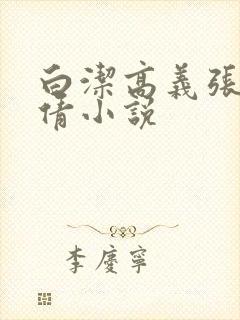 白潔高義張
倩小說
李慶寧